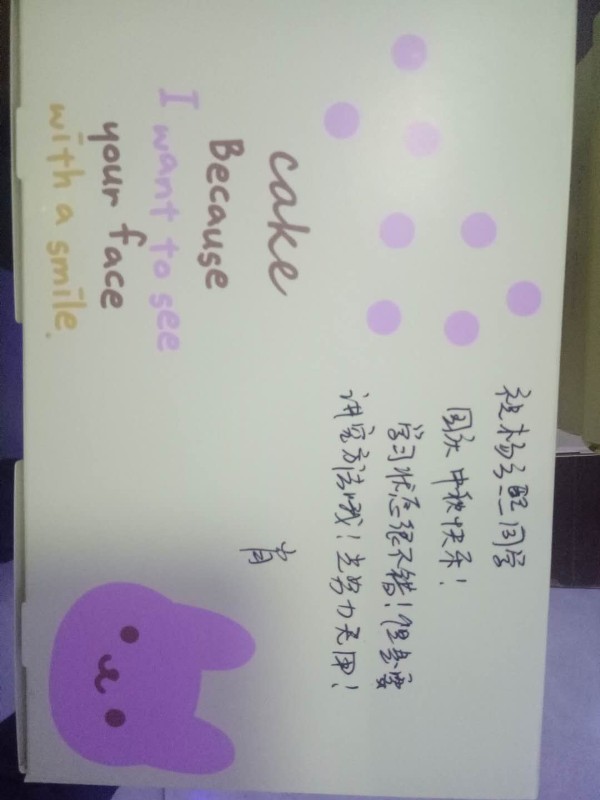 cake
Because
I want to see
your face
with a smile.
同学
国庆中秋快乐！
学习状态很不错！但是要
讲究方法哦！光努力无用！
肖